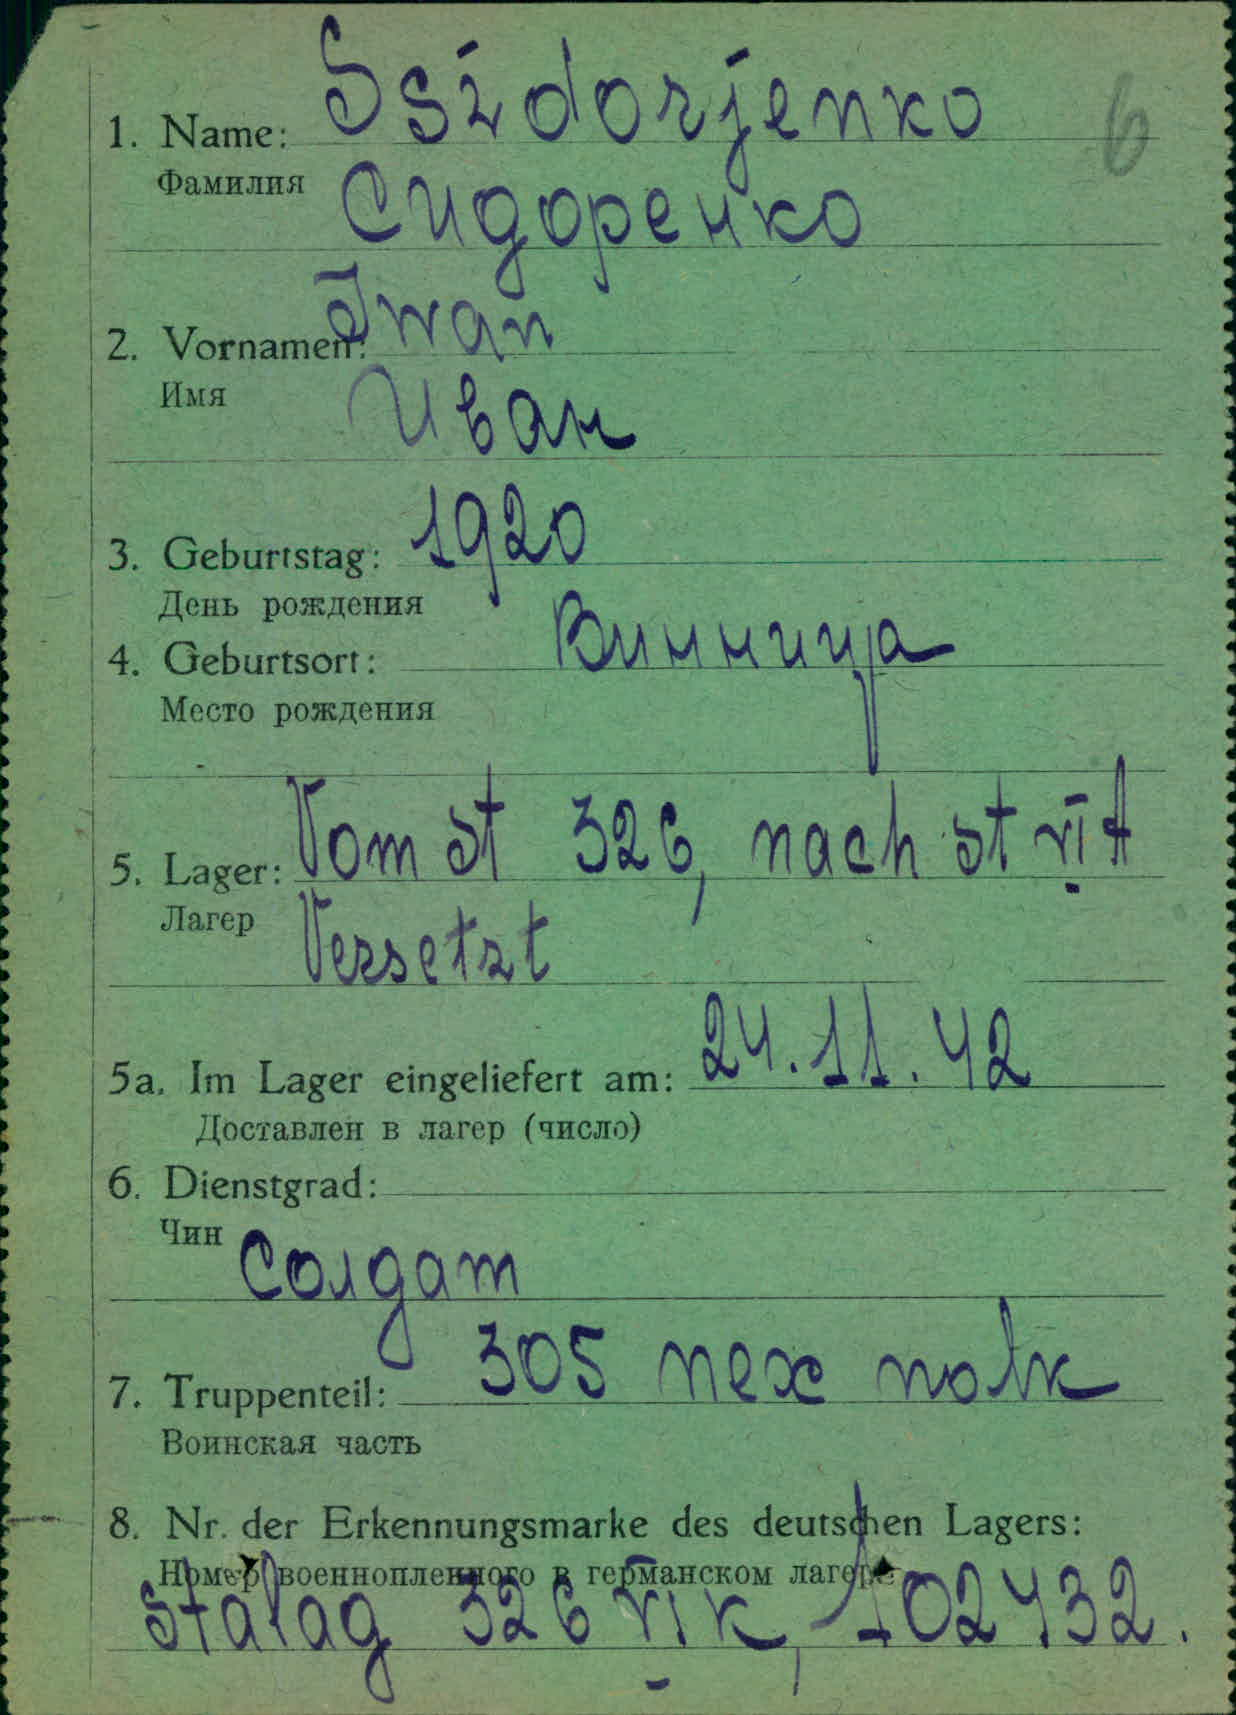 6
Ssidorjenko
1. Name:
Фамилия
Сидоренко
Iwan
2. Vornamen:
Имя
Иван
1920
3. Geburtstag:
День рождения
Винница
4. Geburtsort:
Место рождения
Vom st 326, nach st VI A
5. Lager:
Лагер
Versetzt
24.11.42
5a. Im Lager eingeliefert am:
Доставлен в лагер (число)
6. Dienstgrad:
Чин
Солдат
305 пех полк
7. Truppenteil:
Воинская часть
8. Nr. der Erkennungsmarke des deutschen Lagers:
Номер военнопленного в германском лагере
Stalag 326 VI K, 102432.